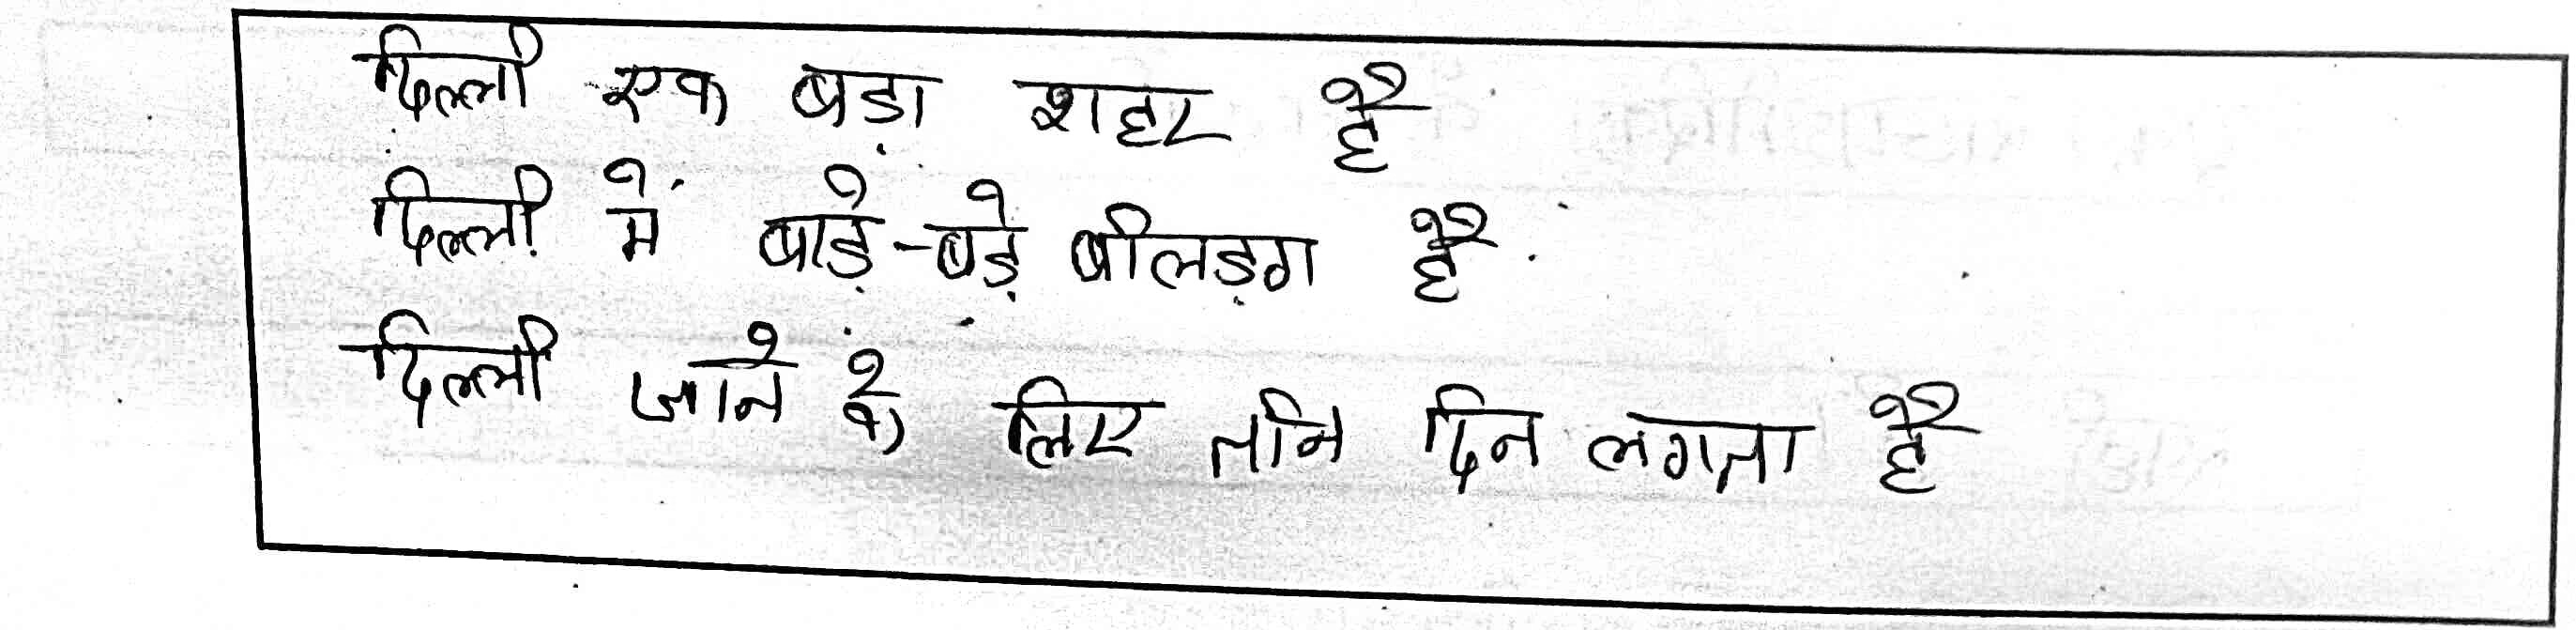 दिल्ली एक बड़ा शहर है
दिल्ली में बाड़े-बड़े बीलड़ग है
दिल्ली जाने के लिए तीन दिन लगता है